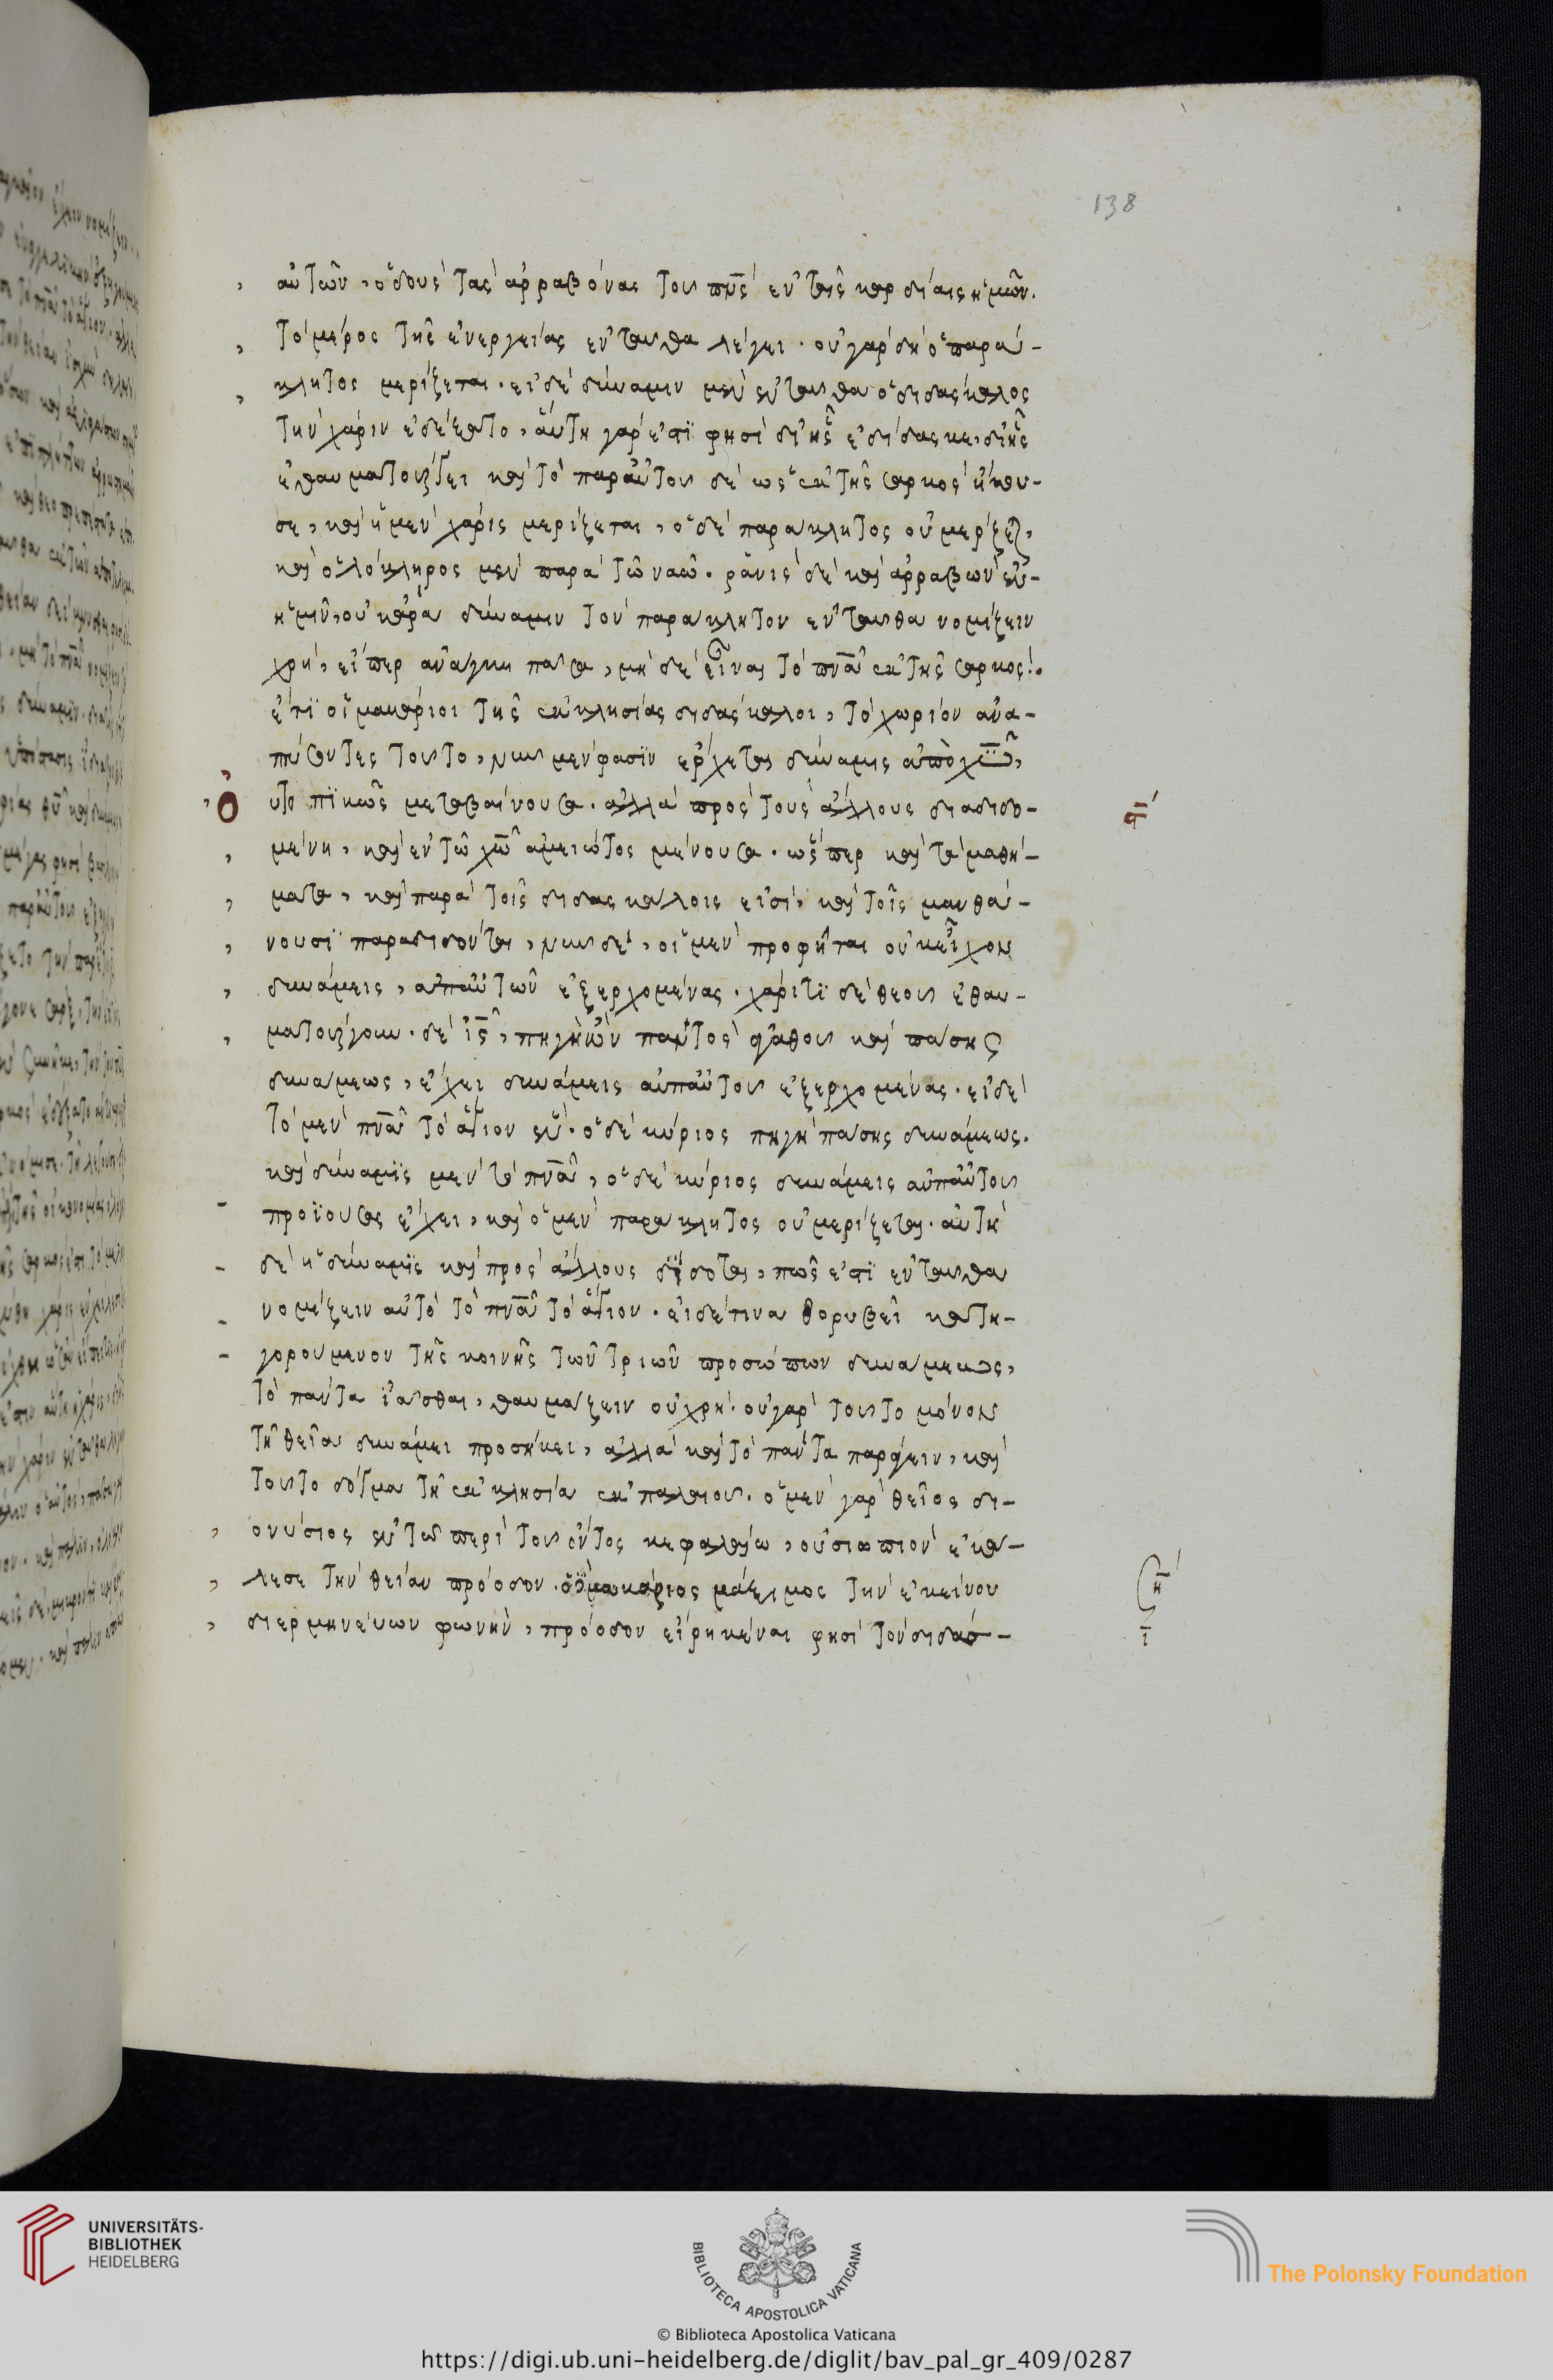 138
αὐτῶν, ὁ δοὺς τὰς ἀρραβόνας τοῦ πνς ἐν ταῖς καρδίαις ἡμῶν.
τὸ μέρος τῆς ἐνεργείας ἐνταῦθα λέγει. οὐ γὰρ δὴ ὁ παρά-
κλητος μερίζεται. εἰ δὲ δύναμιν μὲν ἐνταῦθα ὁ διδάσκαλος
τὴν χάριν ἐδέξατο, αὕτη γάρ ἐστι φησὶ δι' ἧς ἐδίδασκε, δι' ἧς
ἐθαυματούργει καὶ τὸ παρ' αὐτοῦ δὲ ὡς ἐκ τῆς σαρκὸς ἤκου-
σε, καὶ ἡ μὲν χάρις μερίζεται, ὁ δὲ παράκλητος οὐ μερίζεται,
καὶ ὁλόκληρος μὲν παρὰ τῷ ναῷ. ῥανὶς δὲ καὶ ἀρραβὼν ἐν
ἡμῖν, οὐκ ἄρα δύναμιν τὸν παράκλητον ἐνταῦθα νομίζειν
χρή, εἴπερ ἀνάγκη πᾶσα, μὴ δὲ εἶναι τὸ πνα ἐκ τῆς σαρκός.
ἔτι οἱ μακάριοι τῆς ἐκκλησίας διδάσκαλοι, τὸ χωρίον ἀνα-
πτύσοντες τοῦτο, νῦν μὲν φασὶν ἔρχεται δύναμις ἀπὸ χυ,
οὐ τοπικῶς μεταβαίνουσα. ἀλλὰ πρὸς τοὺς ἄλλους διαδιδο-
μένη, καὶ ἐν τῷ χω ἀμειώτος μένουσα. ὥσπερ καὶ τὰ μαθή-
ματα, καὶ παρὰ τοῖς διδασκάλοις εἰσὶ, καὶ τοῖς μανθά-
νουσι παραδίδονται, νῦν δὲ, οἱ μὲν προφῆται οὐκ εἶχον
δυνάμεις, ἀπ' αὐτῶν ἐξερχομένας. χάριτι δὲ θεοῦ ἐθαυ-
ματούργουν. δὲ ις, πηγὴ ὢν παντὸς ἀγαθοῦ καὶ πάσης
δυνάμεως, ἔχει δυνάμεις ἀπ' αὐτοῦ ἐξερχομένας. εἰ δὲ
τὸ μὲν πνα τὸ ἅγιον ἕν. ὁ δὲ κύριος πηγὴ πάσης δυνάμεως.
καὶ δύναμις μὲν τὸ πνα, ὁ δὲ κύριος δυνάμεις ἀπ' αὐτοῦ
προϊούσας ἔχει, καὶ ὁ μὲν παράκλητος οὐ μερίζεται. αὐτὴ
δὲ ἡ δύναμις καὶ πρὸς ἄλλους δίδοται, πῶς ἐστι ἐνταῦθα
νομίζειν αὐτὸ τὸ πνα τὸ ἅγιον. εἰ δέ τινα θορυβεῖ κατη-
γορούμενον τῆς κοινῆς τῶν τριῶν προσώπων δυνάμεως,
τὸ πάντα ἰᾶσθαι, θαυμάζειν οὐ χρή. οὐ γὰρ τοῦτο μόνον
τῇ θεία δυνάμει προσήκει, ἀλλὰ καὶ τὸ πάντα παράγειν, καὶ
τοῦτο δόγμα τῇ ἐκκλησία ἐκ παλαιοῦ. ὁ μὲν γὰρ θεῖος δι-
ονύσιος ἐν τῷ περὶ τοῦ ὄντος κεφαλαίω, οὐσιωποιὸν ἐκά-
λεσε τὴν θείαν πρόοδον. ὁ μακάριος μάξιμος τὴν ἐκείνου
διερμηνεύων φωνὴν, πρόοδον εἰρηκέναι φησὶ τὸν διδάσ-
UNIVERSITÄTS-
BIBLIOTHEK
HEIDELBERG
BIBLIOTECA APOSTOLICA VATICANA
The Polonsky Foundation
© Biblioteca Apostolica Vaticana
https://digi.ub.uni-heidelberg.de/diglit/bav_pal_gr_409/0287